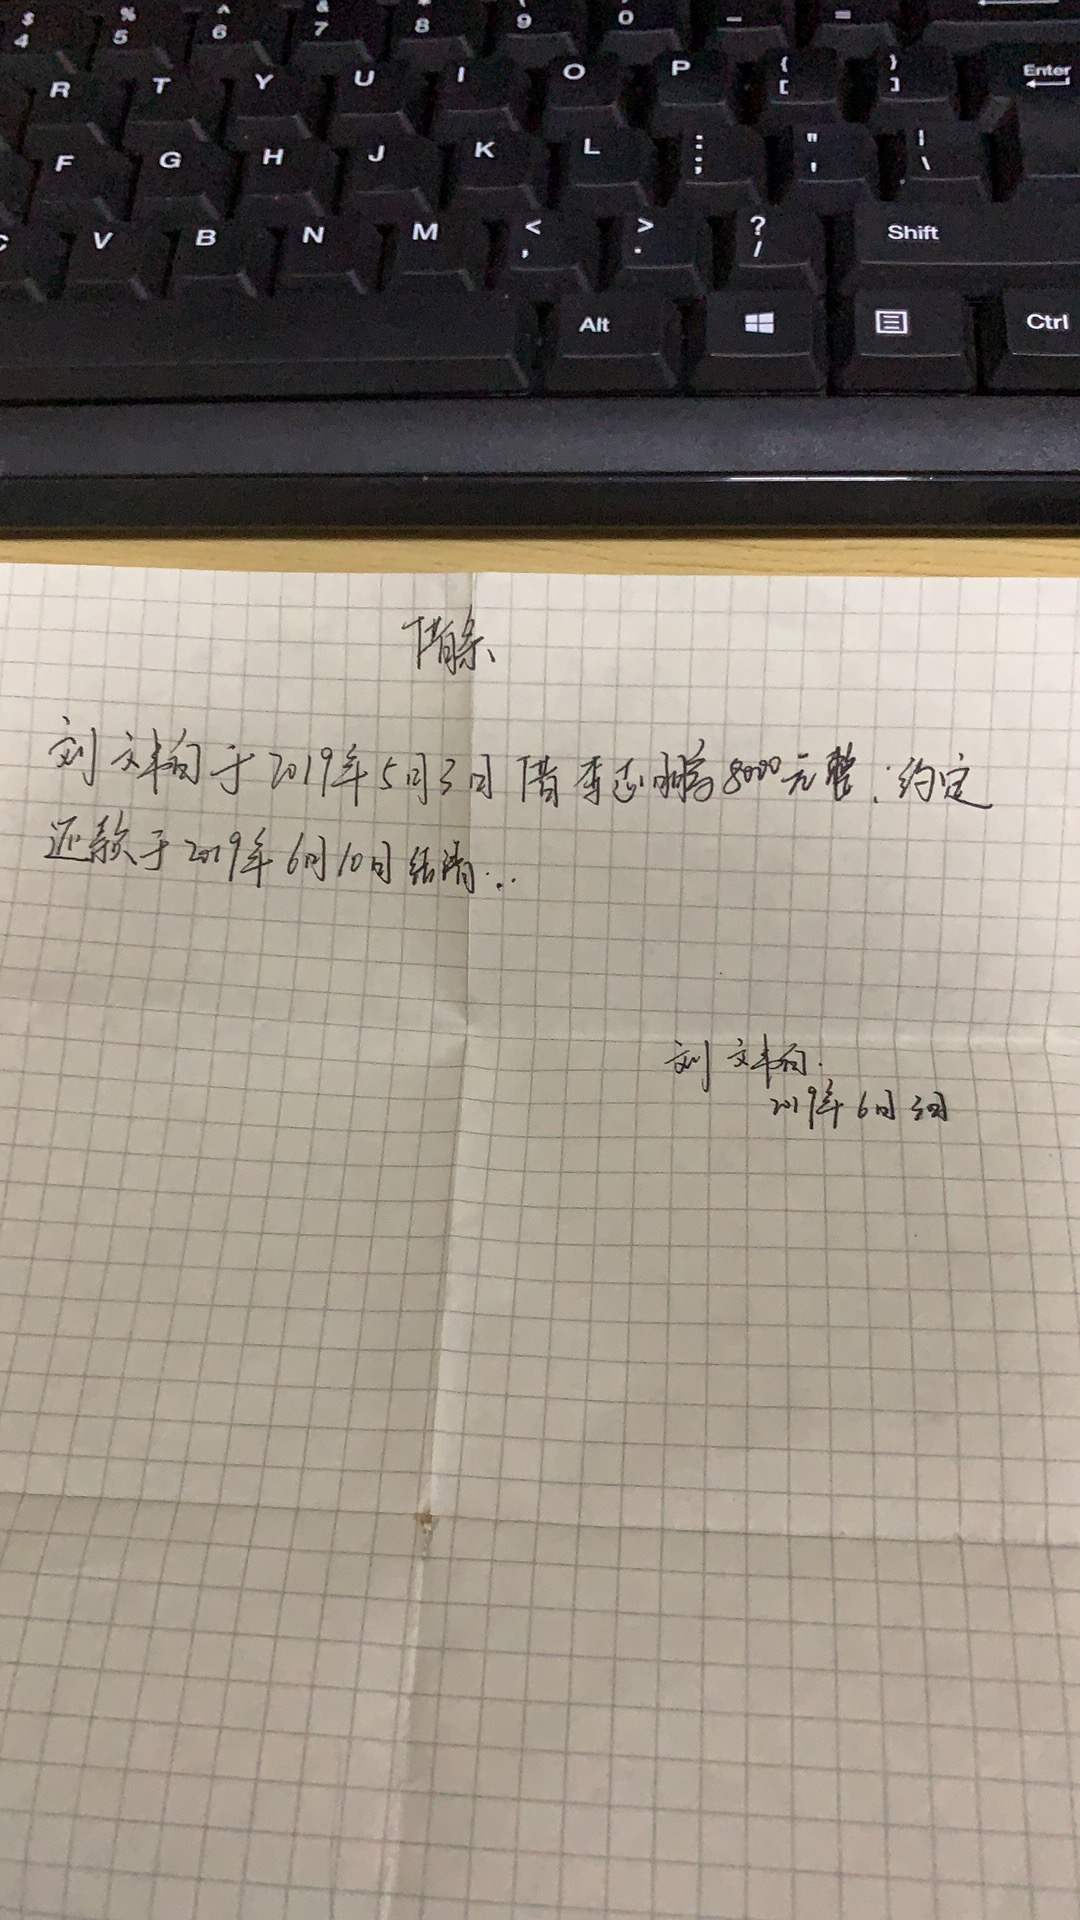 $ % ^ & * ( ) _ +
4 5 6 7 8 9 0 - =
R T Y U I O P { [ } ] Enter
F G H J K L : ; " ' | \
C V B N M < , > . ? / Shift
Alt Ctrl
借条
刘文 于2019年5月3日借李志鹏8000元整;约定
还款于2019年6月10日结清...
刘文
2019年6月3日